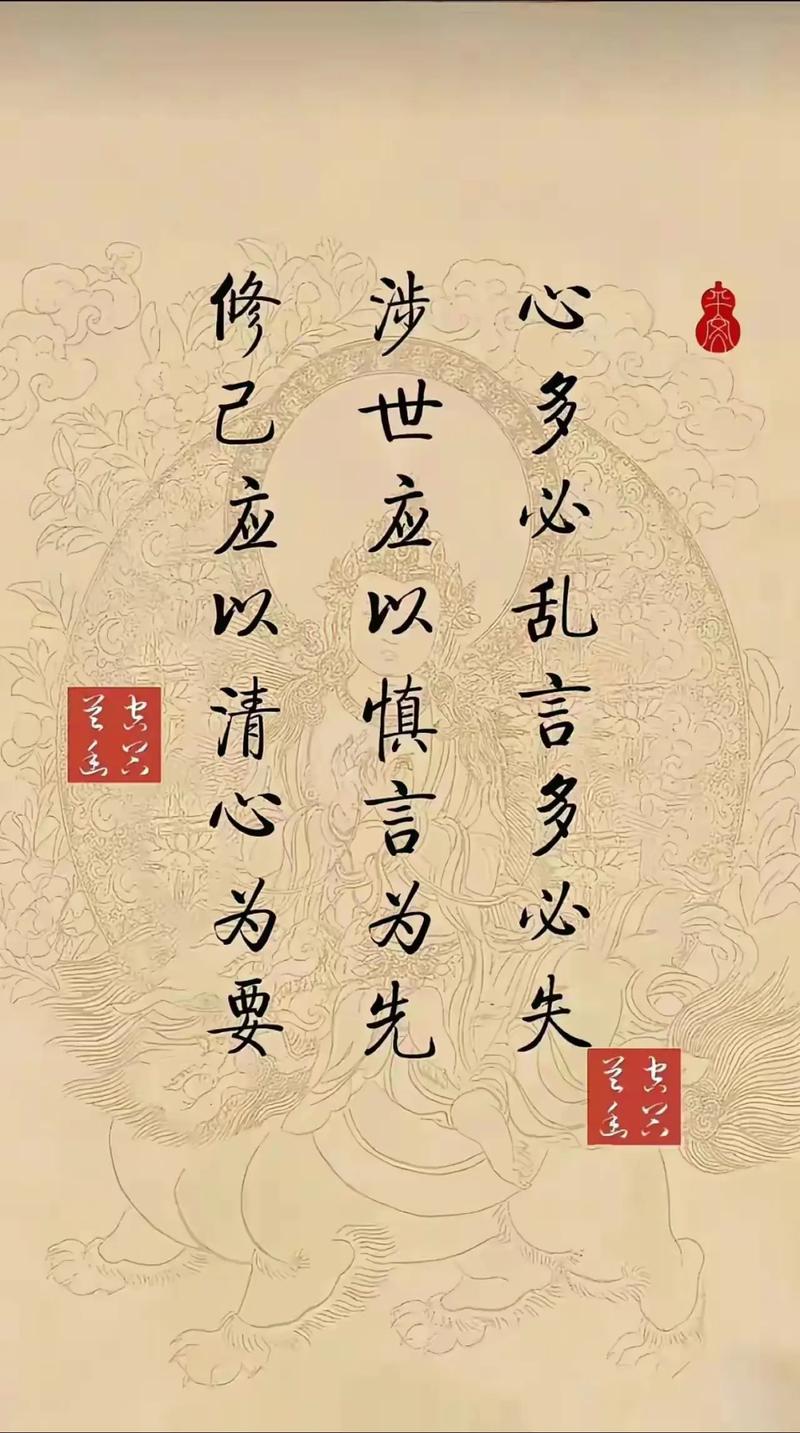 平安
心多必乱言多必失
涉世应以慎言为先
修己应以清心为要